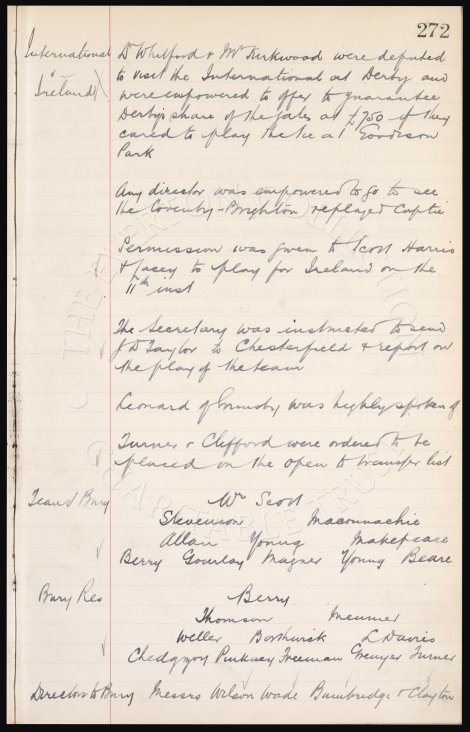 272
International v Ireland X
Dr Whitford & Mr Kirkwood were deputed
to visit the International at Derby and
were empowered to offer to guarantee
Derby's share of the gates at £750 if they
cared to play the tie at Goodison
Park
Any director was empowered to go to see
the Coventry-Brighton replayed Cuptie
Permission was given to Scott Harris
& Lacey to play for Ireland on the
11th inst
The Secretary was instructed to send
J D Taylor to Chesterfield & report on
the play of the team
Leonard of Grimsby was highly spoken of
Turner & Clifford were ordered to be
placed on the open to transfer list
Team v Bury
Wm Scott
Stevenson Maconnachie
Allan Young Makepeace
Berry Gourlay Magner Young Beare
Bury Res
Berry
Thomson Meunier
Weller Borthwick L Davies
Chedgzoy Pinkney Freeman Grenyer Turner
Directors to Bury Messrs Wilson Wade Bainbridge & Clayton
THE EVERTON COLLECTION
CHARITABLE TRUST